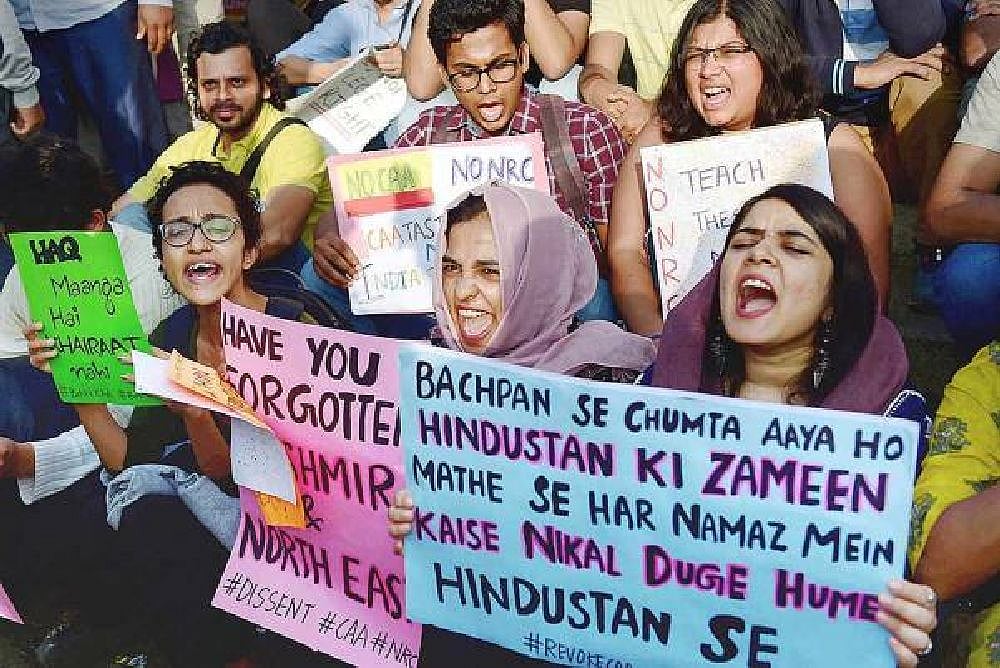 HAQ
Maanga
Hai
KHAIRAAT
nahi
NO CAA
NO NRC
CAATAS
INDIA
NO NRC
TEACH
THE
HAVE YOU
FORGOTTEN
SHMIR
&
NORTH EAST
#DISSENT #CAA #NRC
BACHPAN SE CHUMTA AAYA HO
HINDUSTAN KI ZAMEEN
MATHE SE HAR NAMAZ MEIN
KAISE NIKAL DUGE HUME
HINDUSTAN SE
#REVOKECAA